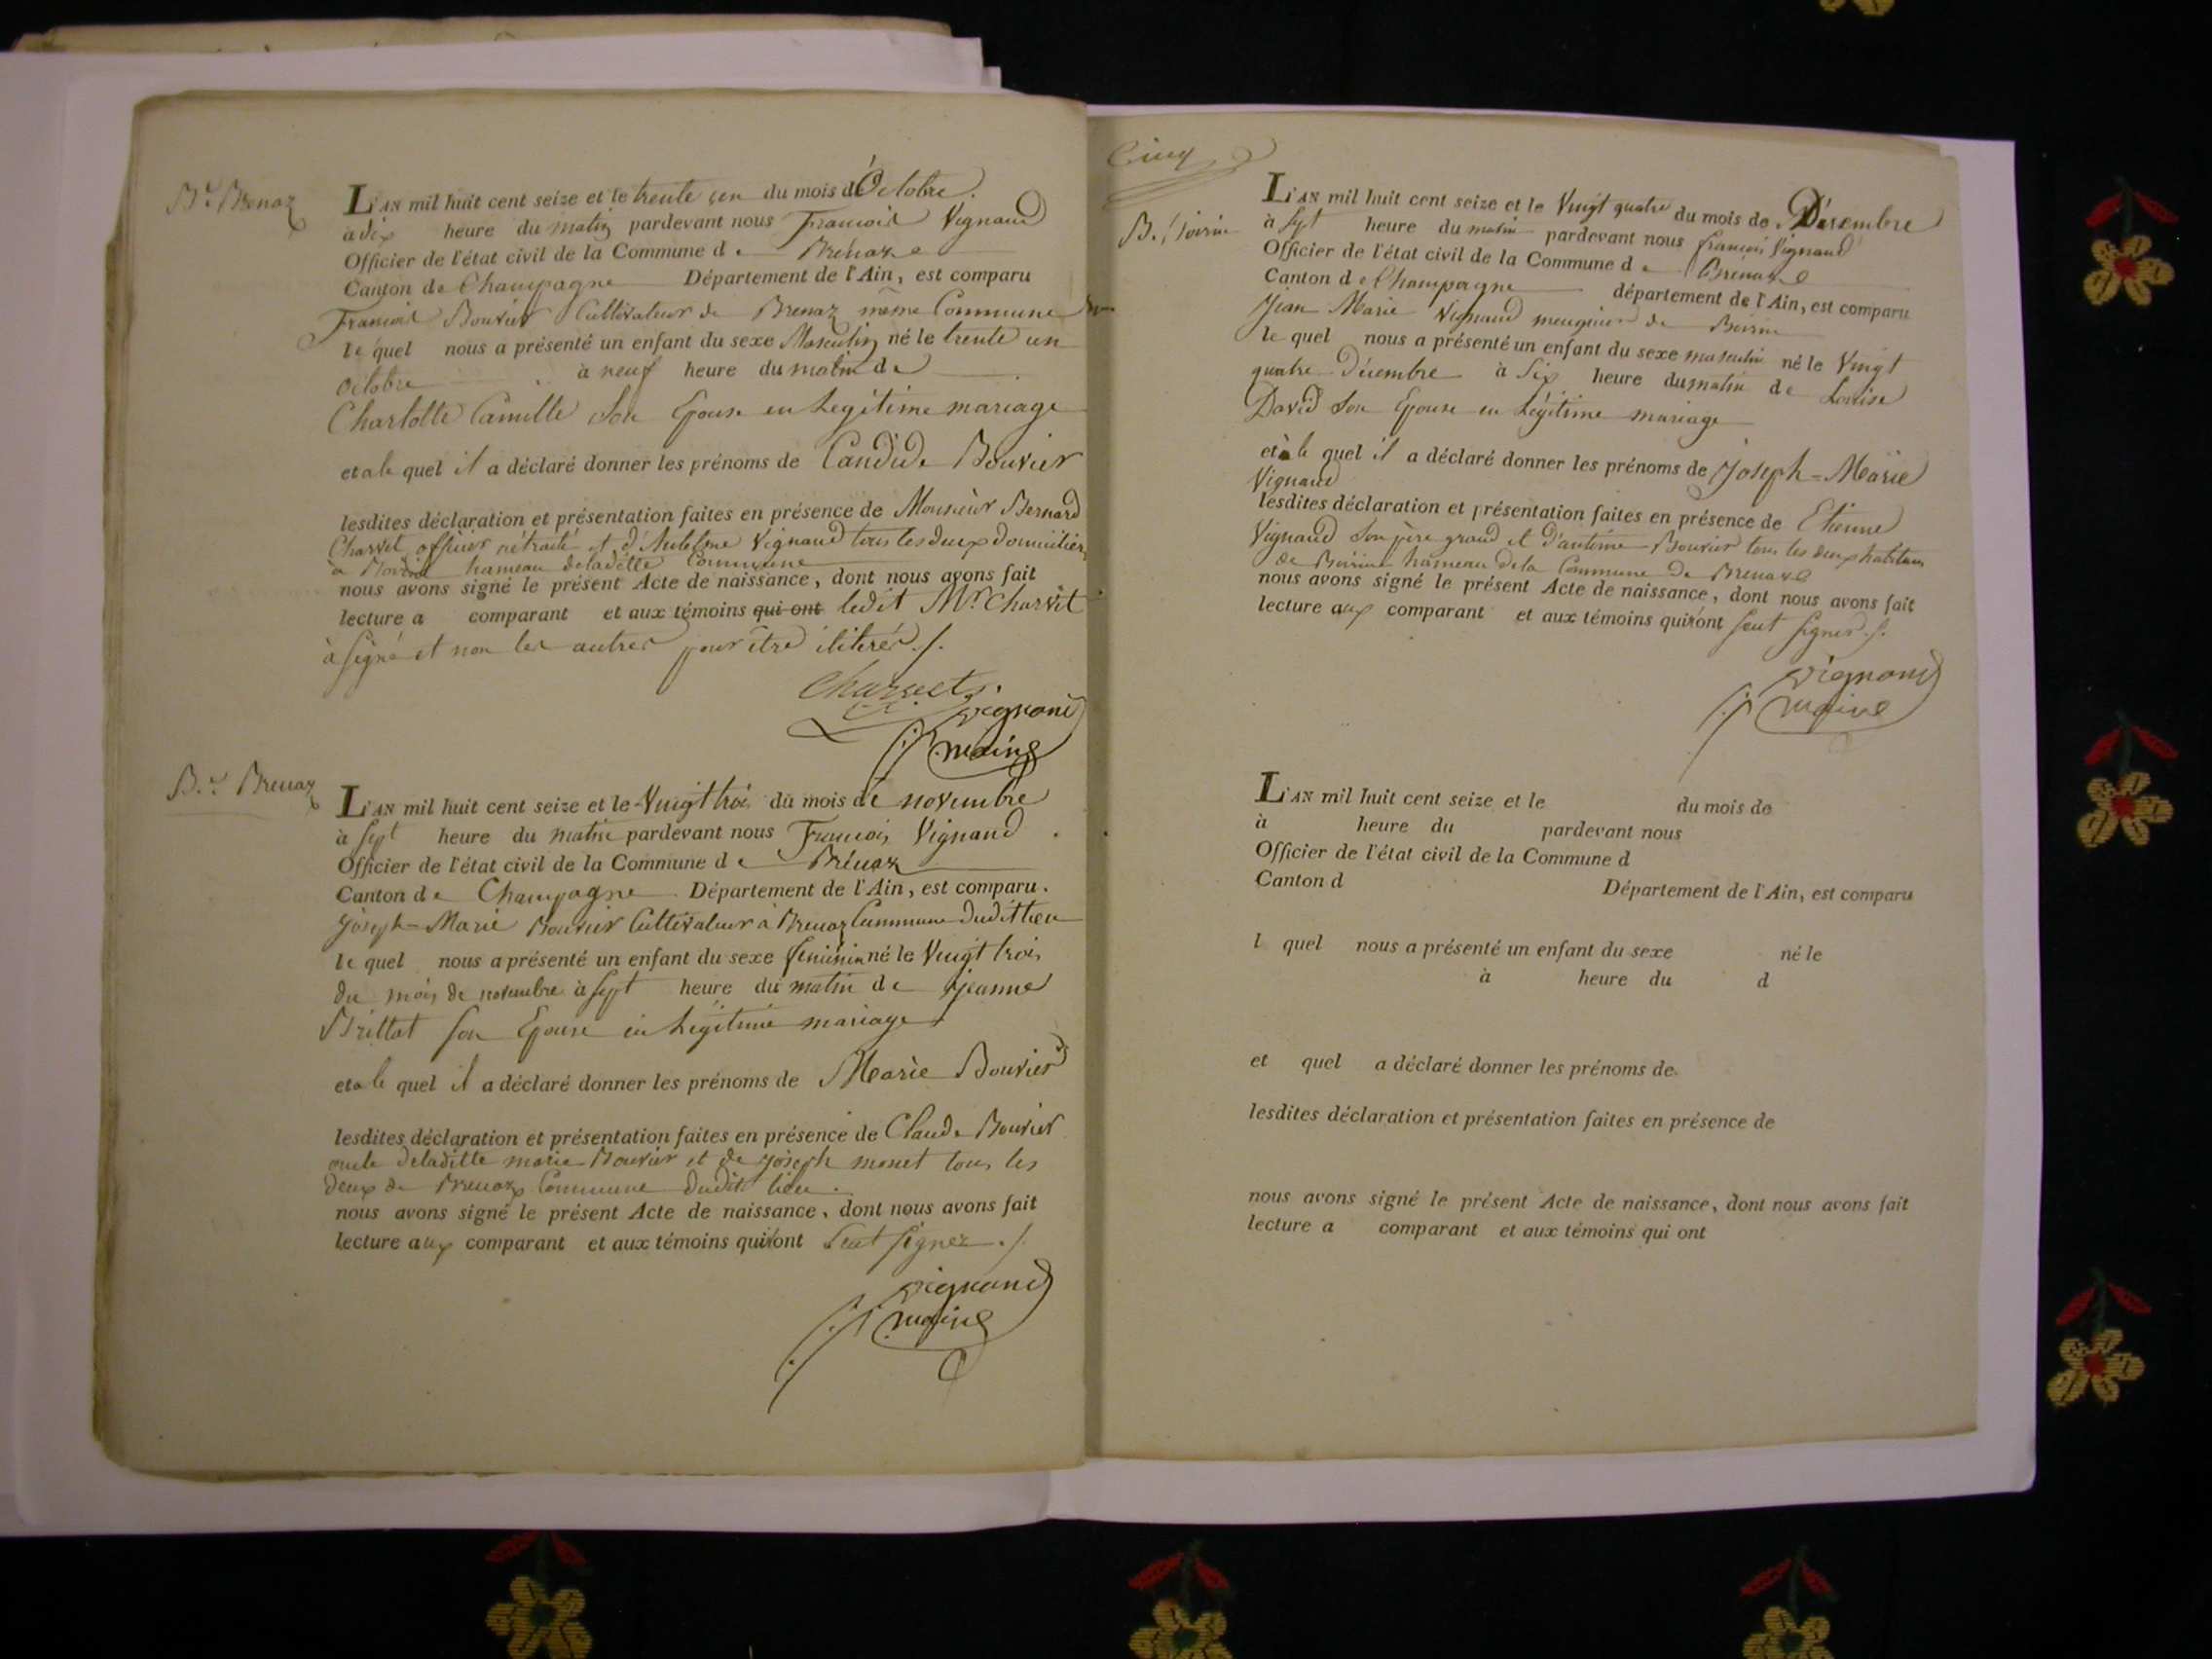 Bt Brenaz
L'AN mil huit cent seize et le trente un du mois d'Octobre
a dix heure du matin pardevant nous François Vignaud
Officier de l'état civil de la Commune de Brénaze
Canton de Champagne Département de l'Ain, est comparu
François Bouvier Cultivateur de Brenaz même Commune
lequel nous a présenté un enfant du sexe Masculin né le trente un
octobre à neuf heure du matin de
Charlotte Camille Son Epouse en Legitime mariage
et a le quel il a déclaré donner les prénoms de Candide Bouvier
lesdites déclaration et présentation faites en présence de Monsieur Bernard
Charvet officier rétraité et d'Antelme Vignaud tous les deux domiciliés
à hameau de ladite Commune
nous avons signé le présent Acte de naissance, dont nous avons fait
lecture a comparant et aux témoins qui ont ledit Mr Charvet
à signé et non les autres pour être iliterés ./.
Charvet
Vignaud
maire
Bt Brenaz
L'AN mil huit cent seize et le Vingt trois du mois de novembre
à sept heure du matin pardevant nous François Vignaud
Officier de l'état civil de la Commune de Brénaz
Canton de Champagne Département de l'Ain, est comparu.
Joseph-Marie Bouvier Cultivateur à Brenaz Commune dudit lieu
le quel nous a présenté un enfant du sexe feminin né le Vingt trois
du mois de novembre à sept heure du matin de Jeanne
Brittat son Epouse en Legitime mariage
et a le quel il a déclaré donner les prénoms de Marie Bouvier
lesdites déclaration et présentation faites en présence de Claude Bouvier
oncle de ladite marie Bouvier et de joseph monet tous les
deux de Brenaz Commune dudit lieu.
nous avons signé le présent Acte de naissance, dont nous avons fait
lecture aux comparant et aux témoins qui n'ont Seut signez ./.
Vignaud
maire
Cinq
B.
L'AN mil huit cent seize et le Vingt quatre du mois de Décembre
à Sept heure du matin pardevant nous françois Vignaud
Officier de l'état civil de la Commune de Brenaze
Canton de Champagne département de l'Ain, est comparu
Jean Marie Vignaud de
le quel nous a présenté un enfant du sexe masculin né le Vingt
quatre Décembre à Six heure du matin de Louise
David Son Epouse en Légitime mariage
et à le quel il a déclaré donner les prénoms de Joseph-Marie
Vignaud
lesdites déclaration et présentation faites en présence de Etienne
Vignaud Son père grand et d'antoine Bouvier tous les deux habitans
de hameau de la Commune de Brenaze
nous avons signé le présent Acte de naissance, dont nous avons fait
lecture aux comparant et aux témoins qui n'ont seut signer ./.
Vignaud
maire
L'AN mil huit cent seize et le du mois de
à heure du pardevant nous
Officier de l'état civil de la Commune d
Canton d Département de l'Ain, est comparu
l quel nous a présenté un enfant du sexe né le
à heure du d
et quel a déclaré donner les prénoms de
lesdites déclaration et présentation faites en présence de
nous avons signé le présent Acte de naissance, dont nous avons fait
lecture a comparant et aux témoins qui ont